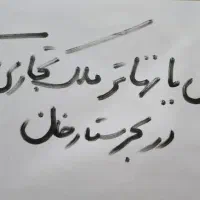 یا تهاتر ملک تجاری
در بحر ستارخان